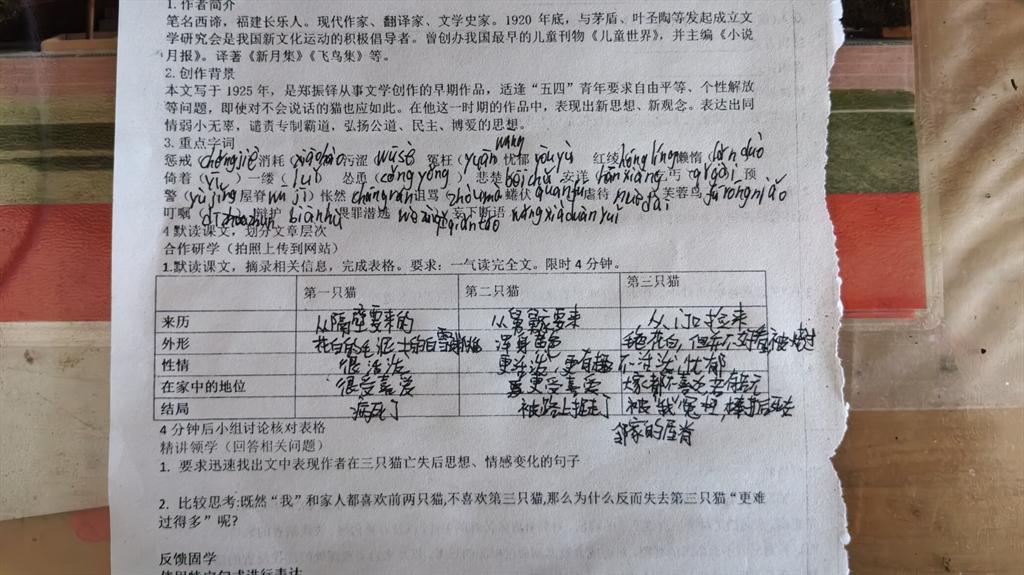 1.作者简介
笔名西谛，福建长乐人。现代作家、翻译家、文学史家。1920 年底，与茅盾、叶圣陶等发起成立文
学研究会是我国新文化运动的积极倡导者。曾创办我国最早的儿童刊物《儿童世界》，并主编《小说
月报》。译著《新月集》《飞鸟集》等。
2.创作背景
本文写于 1925 年，是郑振铎从事文学创作的早期作品，适逢“五四”青年要求自由平等、个性解放
等问题，即使对不会说话的猫也应如此。在他这一时期的作品中，表现出新思想、新观念。表达出同
情弱小无辜，谴责专制霸道，弘扬公道、民主、博爱的思想。
3.重点字词
惩戒 chéngjiè 消耗（xiāohào 污涩 wūsè 冤枉（yuān wang 忧郁 yōuyù 红绫 hónglíng 懒惰 lǎn duò
倚着（yǐ ）一缕（ 怂勇（sǒng yǒng ）悲楚 bēichǔ 安详 ān xiáng 丐 预
警（yù jǐng 屋脊 wū jǐ）怅然 chàng rán 诅骂 zhòu mà 蜷伏 quánfú 虐待 nüè dài 芙蓉鸟 fú róng niǎo
叮嘱 辩护 biànhù 畏罪潜逃 qiántáo 妄下断语 wàng xià duàn yǔ
4 默读课文，划分文章层次
合作研学（拍照上传到网站）
1.默读课文，摘录相关信息，完成表格。要求：一气读完全文。限时 4 分钟。
第一只猫 第二只猫 第三只猫
来历 从隔壁要来的 从舅舅家要来 从门口拾来
外形 花白的毛 泥土的白雪球 浑身黄色 毛色花白，但并不好看
性情 很活泼 更活泼，更有趣 不活泼，忧郁
在家中的地位 很受喜爱 更受喜爱 大家都不喜欢
结局 病死了 被路上捉走了 被“我”冤枉，棒打后死在
邻家的屋脊
4 分钟后小组讨论核对表格
精讲领学（回答相关问题）
1. 要求迅速找出文中表现作者在三只猫亡失后思想、情感变化的句子
2. 比较思考:既然“我”和家人都喜欢前两只猫,不喜欢第三只猫,那么为什么反而失去第三只猫“更难
过得多”呢?
反馈固学